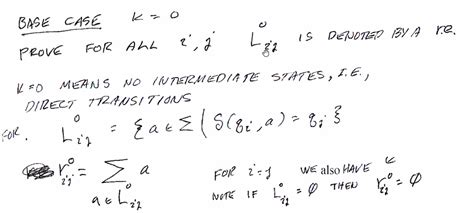 BASE CASE K = 0
PROVE FOR ALL i, j L⁰ij IS DENOTED BY A r.e.
K=0 MEANS NO INTERMEDIATE STATES, I.E.,
DIRECT TRANSITIONS
FOR. L⁰ij = { a ∈ Σ | δ(qi, a) = qj }
r⁰ij = Σ a FOR i=j WE also HAVE ε
a ∈ L⁰ij NOTE IF L⁰ij = Ø THEN r⁰ij = Ø